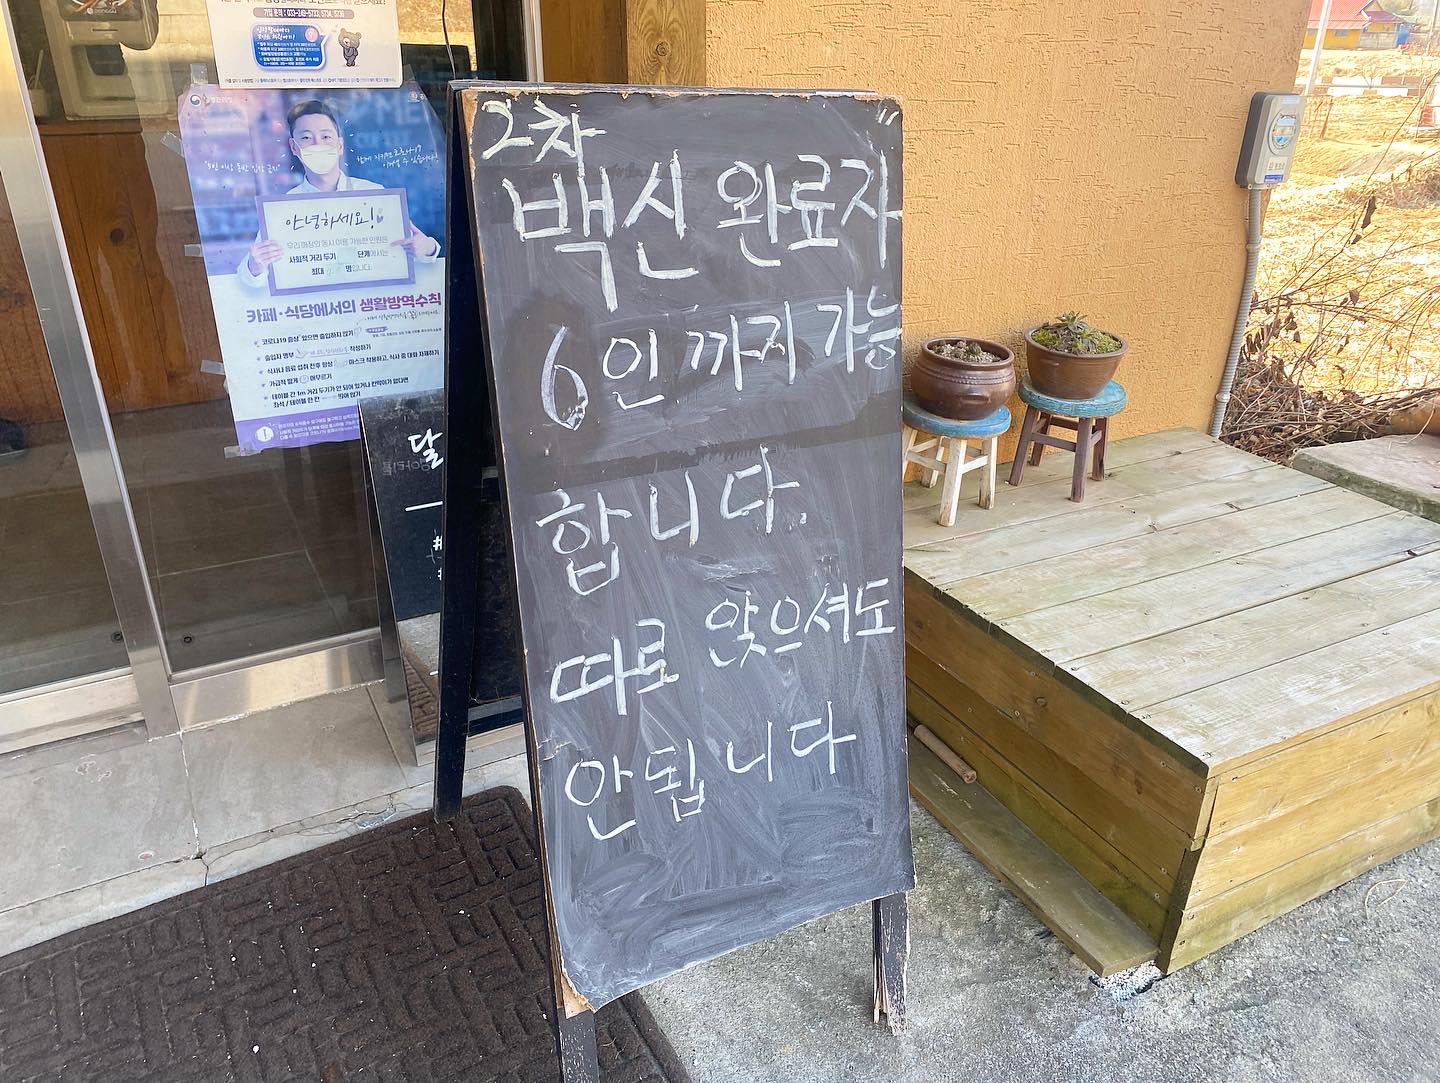 2차
백신 완료자
6인까지 가능
합니다.
따로 앉으셔도
안됩니다
"5인 이상 동반 입장 금지"
안녕하세요!
우리 매장의 동시 이용 가능한 인원은
사회적 거리 두기 단계에서는
최대 명입니다.
카페·식당에서의 생활방역수칙
코로나19 증상 있으면 출입하지 않기
출입자 명부 작성하기
식사나 음료 섭취 전후 항상 마스크 착용하고, 식사 중 대화 자제하기
가급적 짧게 머무르기
테이블 간 1m 거리 두기가 안 되어 있거나 칸막이가 없다면
좌석 / 테이블 한 칸 띄어 앉기
달